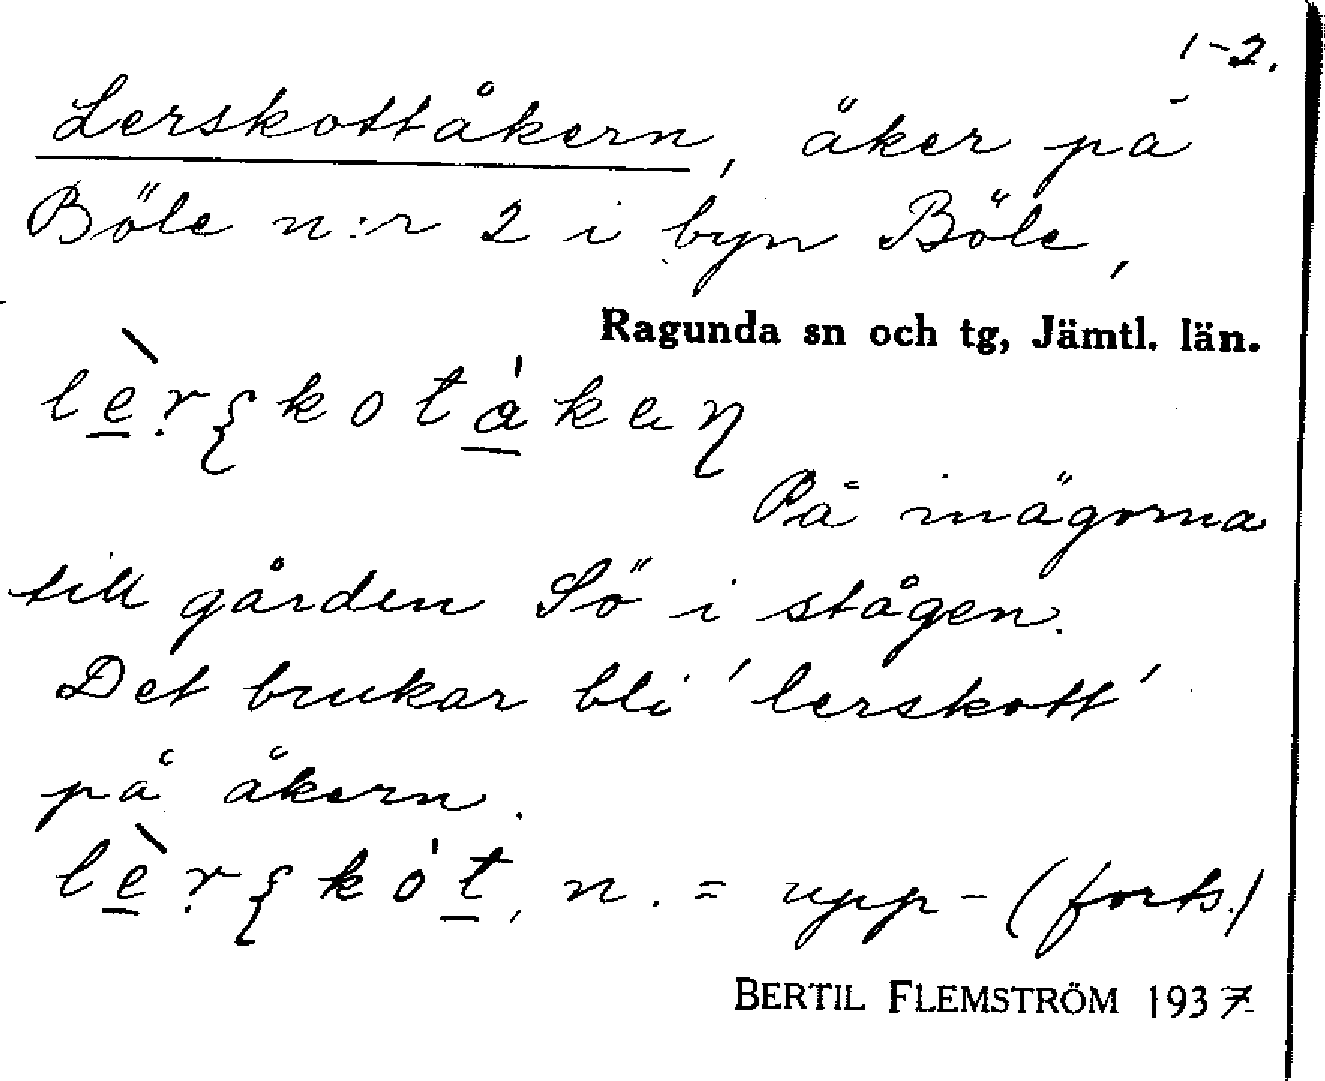 1-2.
Lerskottåkern, åker på
Böle n:r 2 i byn Böle,
Ragunda sn och tg, Jämtl. län.
På inägorna
till gården Sö i stågen.
Det brukar bli 'lerskott'
på åkern.
n. = upp- (forts.)
BERTIL FLEMSTRÖM 1937